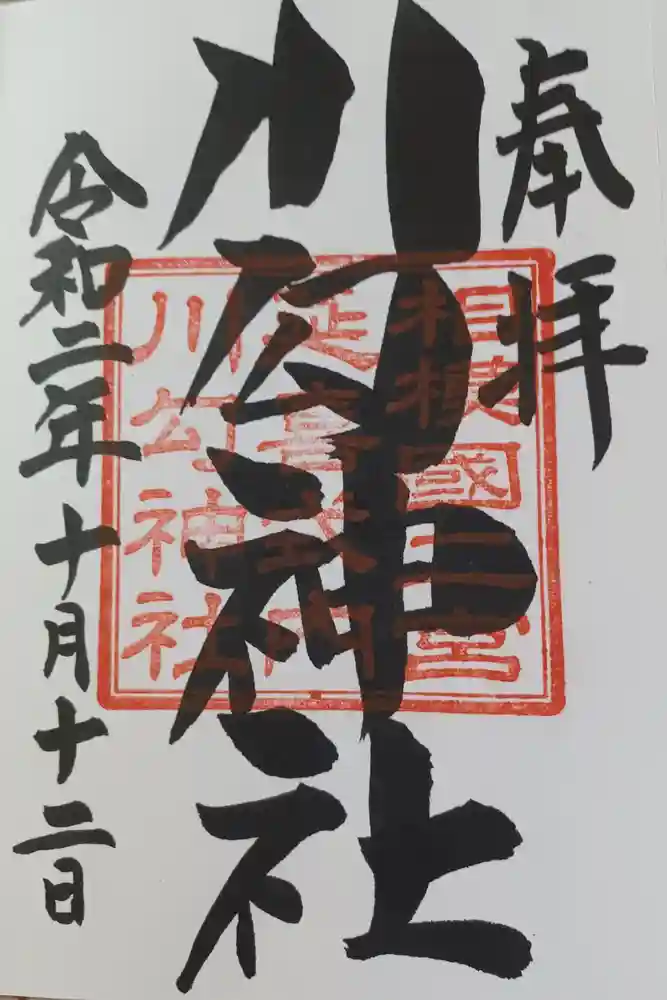 奉拝
川勾神社
相模國二宮
延喜式内
川勾神社
令和二年十月十二日